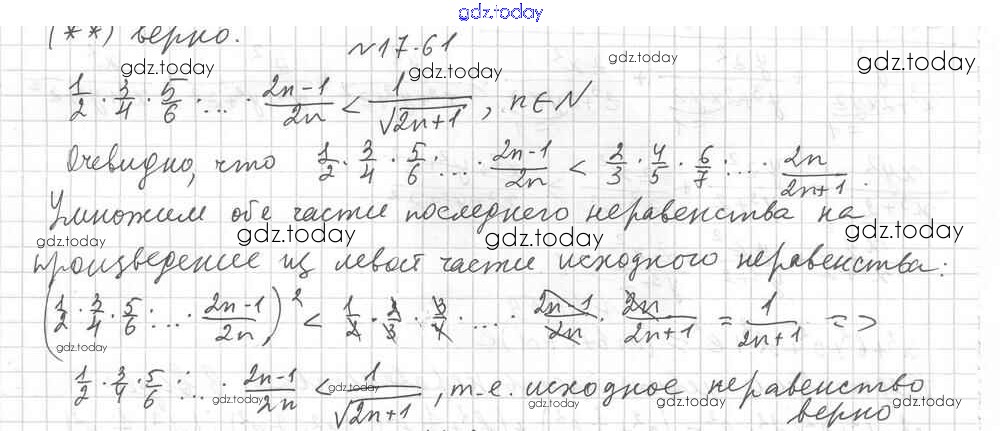 gdz.today
(**) верно.
№17.61
gdz.today gdz.today gdz.today gdz.today
1/2 · 3/4 · 5/6 · ... · (2n-1)/2n < 1/√(2n+1), n∈N
Очевидно, что 1/2 · 3/4 · 5/6 · ... · (2n-1)/2n < 2/3 · 4/5 · 6/7 · ... · 2n/(2n+1).
Умножим обе части последнего неравенства на
gdz.today gdz.today gdz.today gdz.today
произведение из левой части исходного неравенства:
(1/2 · 3/4 · 5/6 · ... · (2n-1)/2n)² < 1/2 · 2/3 · 3/4 · ... · (2n-1)/2n · 2n/(2n+1) = 1/(2n+1) =>
gdz.today
1/2 · 3/4 · 5/6 · ... · (2n-1)/2n < 1/√(2n+1), т.е. исходное неравенство
верно
gdz.today gdz.today gdz.today gdz.today